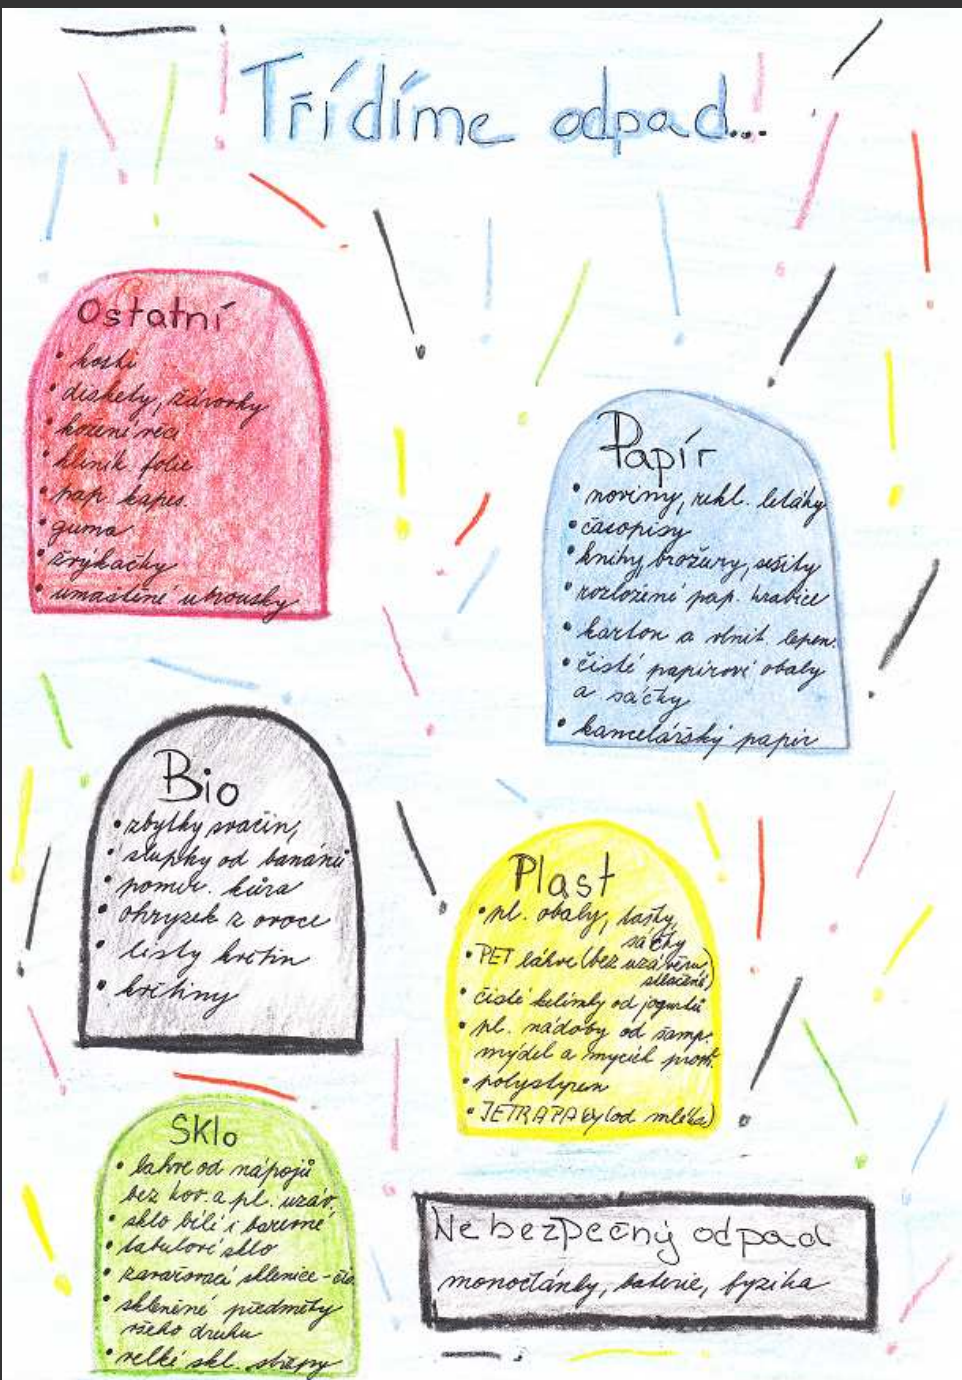 Třídíme odpad...
Ostatní
• kosti
• diskety, žárovky
• kožené věci
• hliník. folie
• pap. kapes.
• guma
• žvýkačky
• umaštěné ubrousky
Papír
• noviny, rekl. letáky
• časopisy
• knihy, brožury, sešity
• rozložené pap. krabice
• karton a vlnit. lepen.
• čisté papírové obaly
a sáčky
• kancelářský papír
Bio
• zbytky svačin,
• slupky od banánů
• pomer. kůra
• ohryzek z ovoce
• listy květin
• květiny
Plast
• pl. obaly, tašky,
sáčky
• PET láhve (bez uzávěru,
stlačené)
• čisté kelímky od jogurtů
• pl. nádoby od šamp.
mýdel a mycích prostř.
• polystyren
• TETRAPAKy (od mléka)
Sklo
• lahve od nápojů
bez kov. a pl. uzáv.
• sklo bílé i barevné
• tabulové sklo
• zavařovací sklenice -
• skleněné předměty
všeho druhu
• velké skl. střepy
Nebezpečný odpad
monočlánky, baterie, fyzika